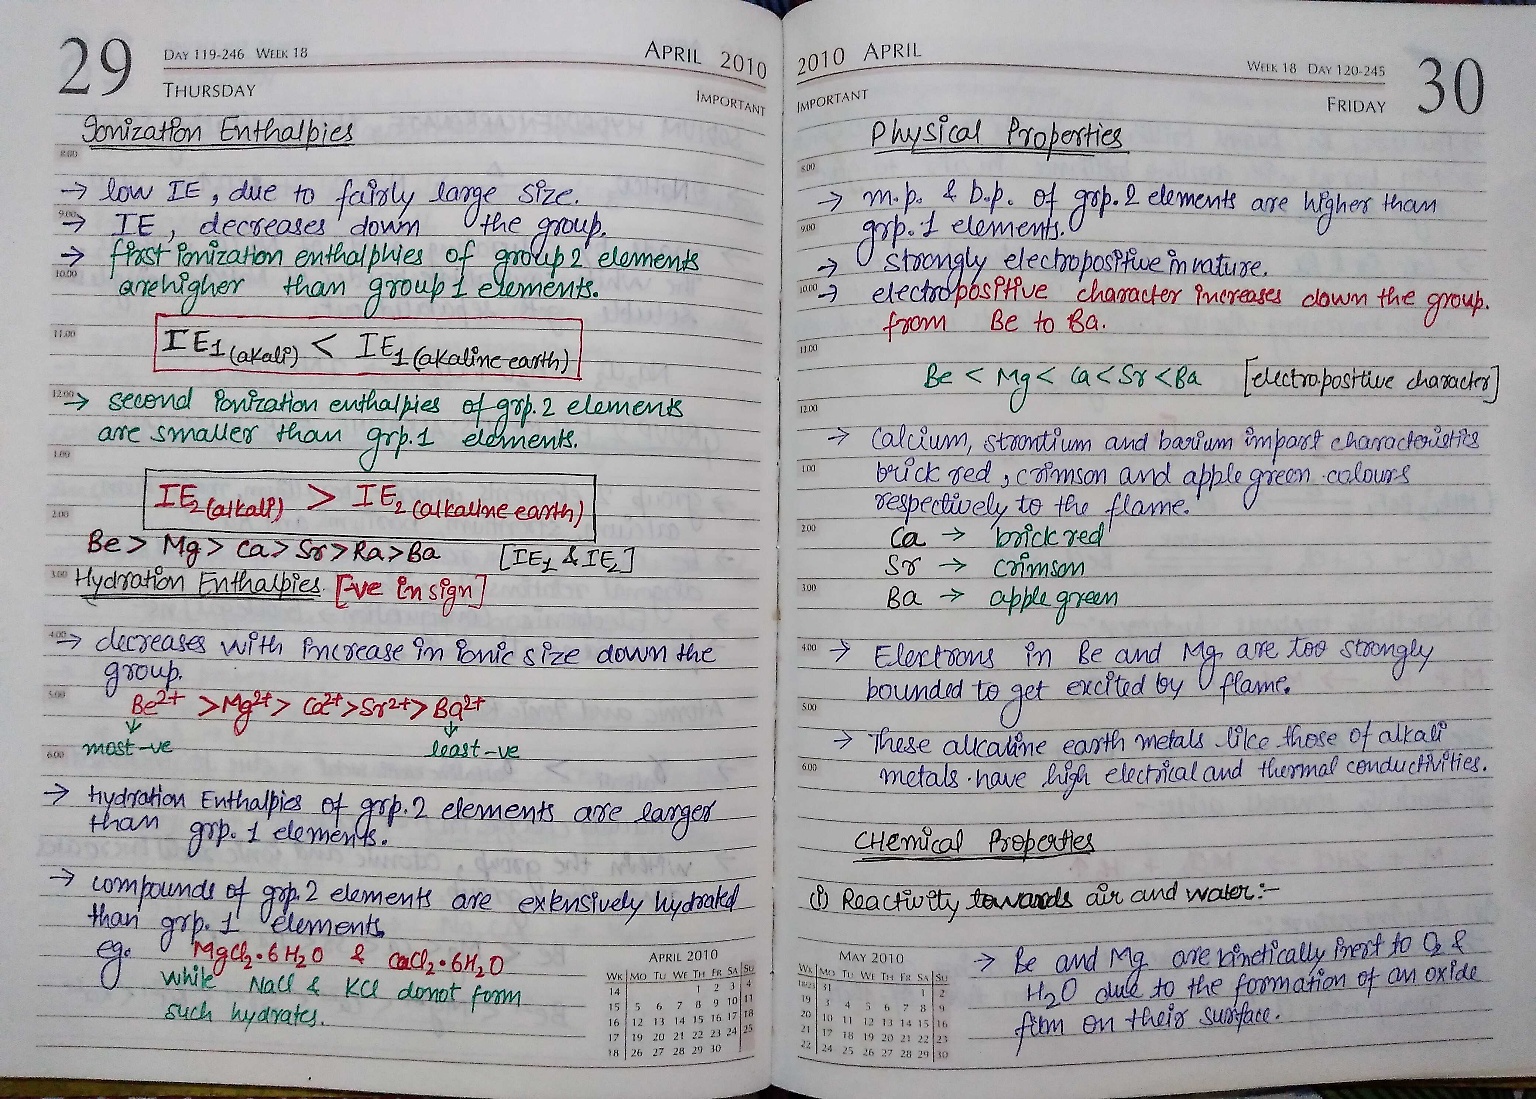 29
DAY 119-246 WEEK 18
APRIL 2010
THURSDAY
IMPORTANT
Ionization Enthalpies
8.00
→ low IE, due to fairly large size.
9.00
→ IE, decreases down the group.
→ first ionization enthalphies of group 2 elements
10.00
are higher than group 1 elements.
11.00
IE1 (akali) < IE1 (akaline earth)
12.00
→ second ionization enthalpies of grp. 2 elements
are smaller than grp. 1 elements.
1.00
IE2 (alkali) > IE2 (alkaline earth)
2.00
Be > Mg > Ca > Sr > Ra > Ba [IE1 & IE2]
3.00
Hydration Enthalpies [-ve in sign]
4.00
→ decreases with increase in ionic size down the
group.
5.00
Be2+ > Mg2+ > Ca2+ > Sr2+ > Ba2+
↓ ↓
most -ve least -ve
6.00
→ Hydration Enthalpies of grp. 2 elements are larger
than grp. 1 elements.
→ compounds of grp. 2 elements are extensively hydrated
than grp. 1 elements
eg. MgCl2.6H2O & CaCl2.6H2O
while NaCl & KCl donot form
such hydrates.
APRIL 2010
WK MO TU WE TH FR SA SU
14 1 2 3 4
15 5 6 7 8 9 10 11
16 12 13 14 15 16 17 18
17 19 20 21 22 23 24 25
18 26 27 28 29 30
2010 APRIL
WEEK 18 DAY 120-245
30
IMPORTANT
FRIDAY
Physical Properties
8.00
→ m.p. & b.p. of grp. 2 elements are higher than
9.00
grp. 1 elements.
→ strongly electropositive in nature.
10.00
→ electropositive character increases down the group.
from Be to Ba.
11.00
Be < Mg < Ca < Sr < Ba [electropositive character]
12.00
→ Calcium, strontium and barium impart characteristics
1.00
brick red, crimson and apple green colours
respectively to the flame.
2.00
Ca → brick red
Sr → crimson
3.00
Ba → apple green
4.00
→ Electrons in Be and Mg are too strongly
bounded to get excited by flame.
5.00
→ These alkaline earth metals like those of alkali
6.00
metals have high electrical and thermal conductivities.
CHemical Properties
(i) Reactivity towards air and water:-
→ Be and Mg are kinetically inert to O2 &
H2O due to the formation of an oxide
film on their surface.
MAY 2010
WK MO TU WE TH FR SA SU
18/23 31 1 2
19 3 4 5 6 7 8 9
20 10 11 12 13 14 15 16
21 17 18 19 20 21 22 23
22 24 25 26 27 28 29 30